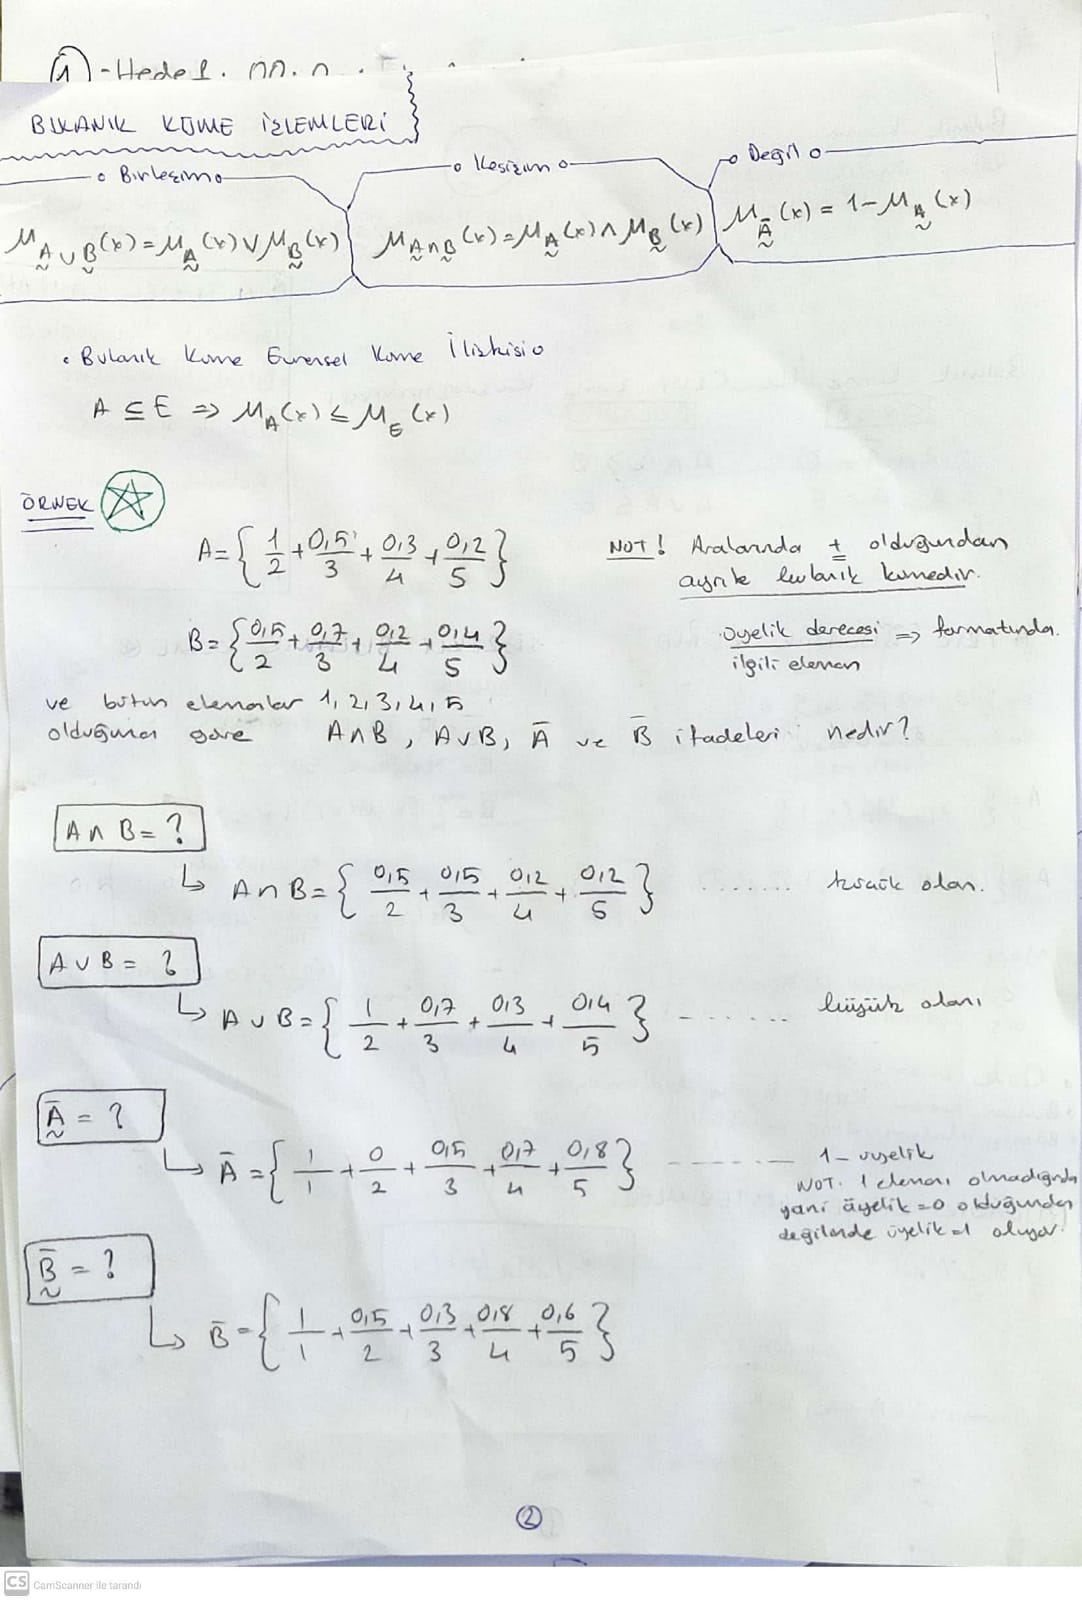 1 - Hedef.
BULANIK KÜME İŞLEMLERİ
Birleşim
Kesişim
Değil
μ_{A∪B}(x) = μ_A(x) ∨ μ_B(x)
μ_{A∩B}(x) = μ_A(x) ∧ μ_B(x)
μ_Ā(x) = 1 - μ_A(x)
• Bulanık Küme Evrensel Küme İlişkisi
A ⊆ E ⇒ μ_A(x) ≤ μ_E(x)
ÖRNEK
A = { 1/2 + 0,5/3 + 0,3/4 + 0,2/5 }
NOT! Aralarında + olduğundan
ayrık bulanık kümedir.
B = { 0,5/2 + 0,7/3 + 0,2/4 + 0,4/5 }
üyelik derecesi ⇒ formatında.
ilgili eleman
ve bütün elemanlar 1, 2, 3, 4, 5
olduğuna göre A∩B, A∪B, Ā ve B̄ ifadeleri nedir?
A∩B = ?
A∩B = { 0,5/2 + 0,5/3 + 0,2/4 + 0,2/5 } ....... küçük olan.
A∪B = ?
A∪B = { 1/2 + 0,7/3 + 0,3/4 + 0,4/5 } ....... büyük olanı
Ā = ?
Ā = { 1/1 + 0/2 + 0,5/3 + 0,7/4 + 0,8/5 } ------- 1 - üyelik
NOT. 1 elemanı olmadığında
yani üyelik = 0 olduğundan
değilinde üyelik = 1 oluyor.
B̄ = ?
B̄ = { 1/1 + 0,5/2 + 0,3/3 + 0,8/4 + 0,6/5 }
2
CS CamScanner ile tarandı